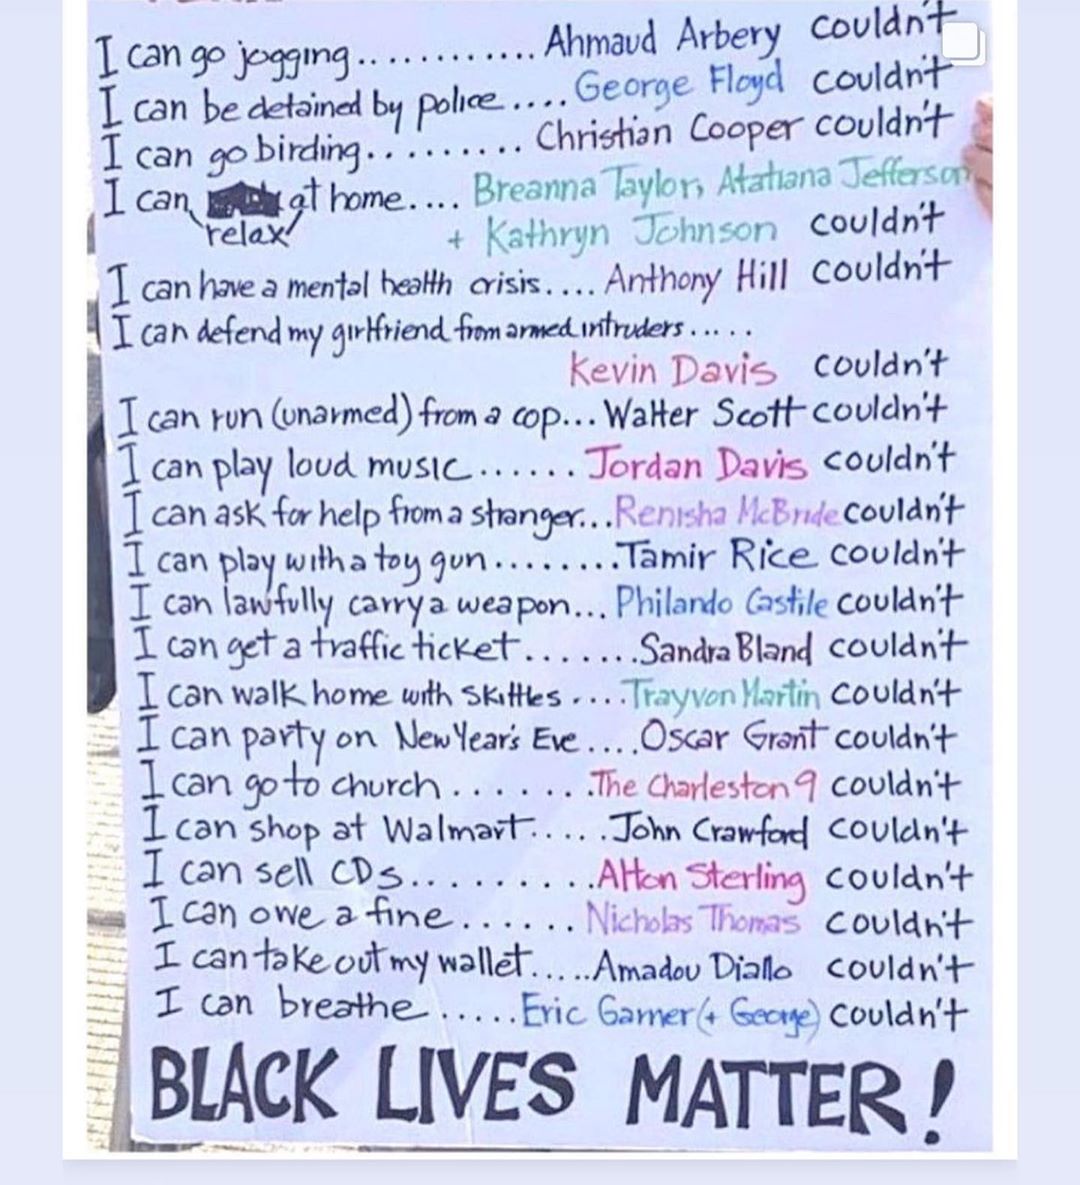 I can go jogging............ Ahmaud Arbery couldn't
I can be detained by police.... George Floyd couldn't
I can go birding.......... Christian Cooper couldn't
I can at home.... Breanna Taylor, Atatiana Jefferson
relax + Kathryn Johnson couldn't
I can have a mental health crisis.... Anthony Hill couldn't
I can defend my girlfriend from armed intruders.....
Kevin Davis couldn't
I can run (unarmed) from a cop... Walter Scott couldn't
I can play loud music...... Jordan Davis couldn't
I can ask for help from a stranger...Renisha McBride couldn't
I can play with a toy gun........Tamir Rice couldn't
I can lawfully carry a weapon... Philando Castile couldn't
I can get a traffic ticket.......Sandra Bland couldn't
I can walk home with Skittles ....Trayvon Martin couldn't
I can party on New Year's Eve....Oscar Grant couldn't
I can go to church.......The Charleston 9 couldn't
I can shop at Walmart.....John Crawford couldn't
I can sell CDs..........Alton Sterling couldn't
I can owe a fine...... Nicholas Thomas couldn't
I can take out my wallet.....Amadou Diallo couldn't
I can breathe.....Eric Garner (+ George) couldn't
BLACK LIVES MATTER!